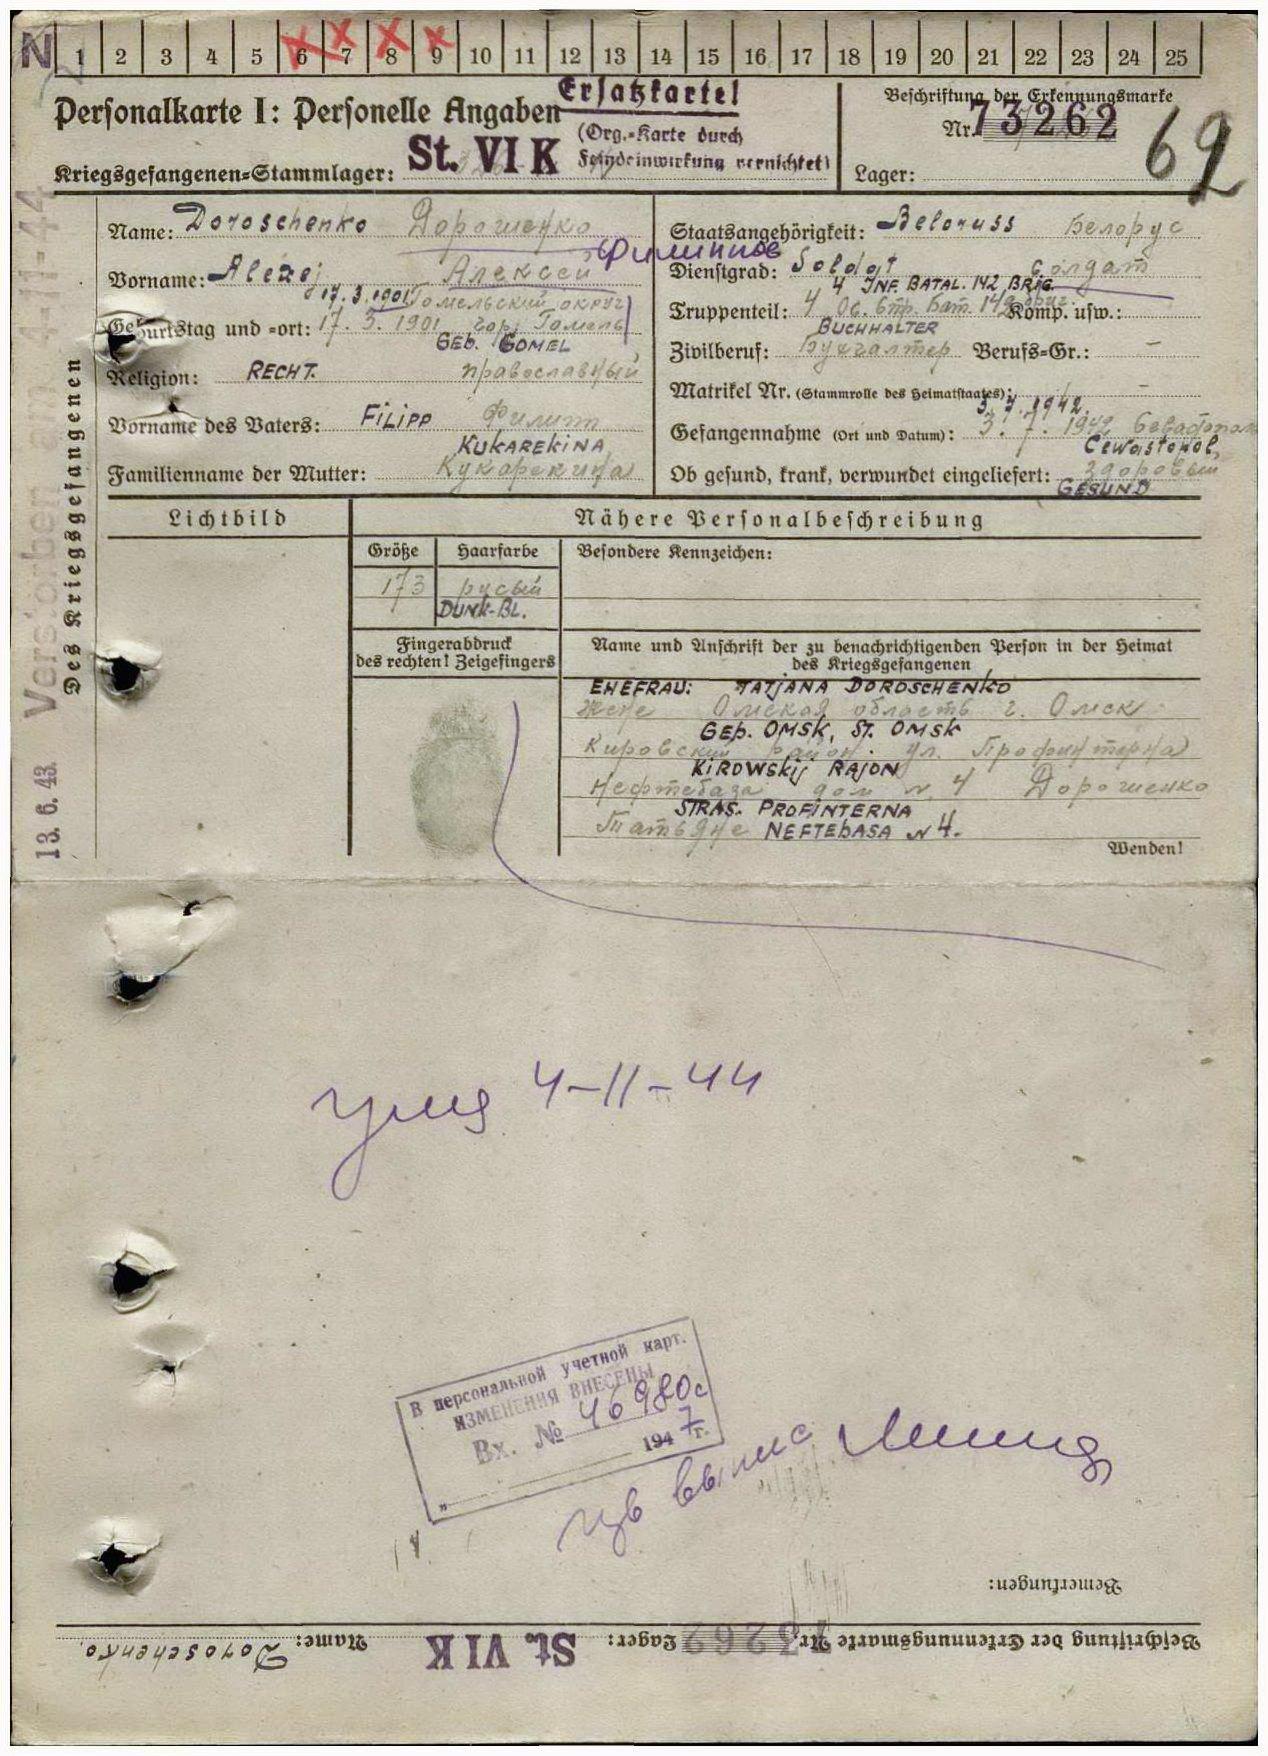 N 1 2 3 4 5 6 7 8 9 10 11 12 13 14 15 16 17 18 19 20 21 22 23 24 25
Personalkarte I: Personelle Angaben
Ersatzkarte!
(Org.-Karte durch
Feindeinwirkung vernichtet)
Kriegsgefangenen-Stammlager: St. VI K
Beschriftung der Erkennungsmarke
Nr. 73262
62
Lager:
Des Kriegsgefangenen
13. 6. 43. Verstorben am 4-11-44
Name: Doroschenko Дорошенко
Vorname: Alexej Алексей Филиппов
17.3.1901 Гомельский округ
Geburtstag und -ort: 17. 3. 1901 гор. Гомель
GEB. GOMEL
Religion: RECHT. православный
Vorname des Vaters: FILIPP Филипп
KUKAREKINA
Familienname der Mutter: Кукарекина
Staatsangehörigkeit: Beloruss Белорус
Dienstgrad: Soldat Солдат
4 INF. BATAL. 142 BRIG.
Truppenteil: 4 Ос. Стр. бат. 142 бриг. Komp. usw.:
BUCHHALTER
Zivilberuf: Бухгалтер Berufs-Gr.: —
Matrikel Nr. (Stammrolle des Heimatstaates): —
3. 7. 1942.
Gefangennahme (Ort und Datum): 3. 7. 1942 Севастополь
Cewastopol,
Ob gesund, krank, verwundet eingeliefert: здоровый
GESUND
Lichtbild
Nähere Personalbeschreibung
Größe Haarfarbe Besondere Kennzeichen:
173 русый
DUNK-BL.
Fingerabdruck
des rechten! Zeigefingers
Name und Anschrift der zu benachrichtigenden Person in der Heimat
des Kriegsgefangenen
EHEFRAU: TATJANA DOROSCHENKO
Жене Омская область г. Омск
GEB. OMSK, ST. OMSK
Кировский район. ул. Профинтерна
KIROWSKIJ RAJON
Нефтебаза дом N 4 Дорошенко
STRAS. PROFINTERNA
Татьяне NEFTEBASA N 4.
Wenden!
4-11-44
В персональной учетной карт.
ИЗМЕНЕНИЯ ВНЕСЕНЫ
Вх. № 46980с
" 1947 г.
Bemerkungen:
Beschriftung der Erkennungsmarke Nr. 73262 Lager: St. VI K Name: Doroschenko.